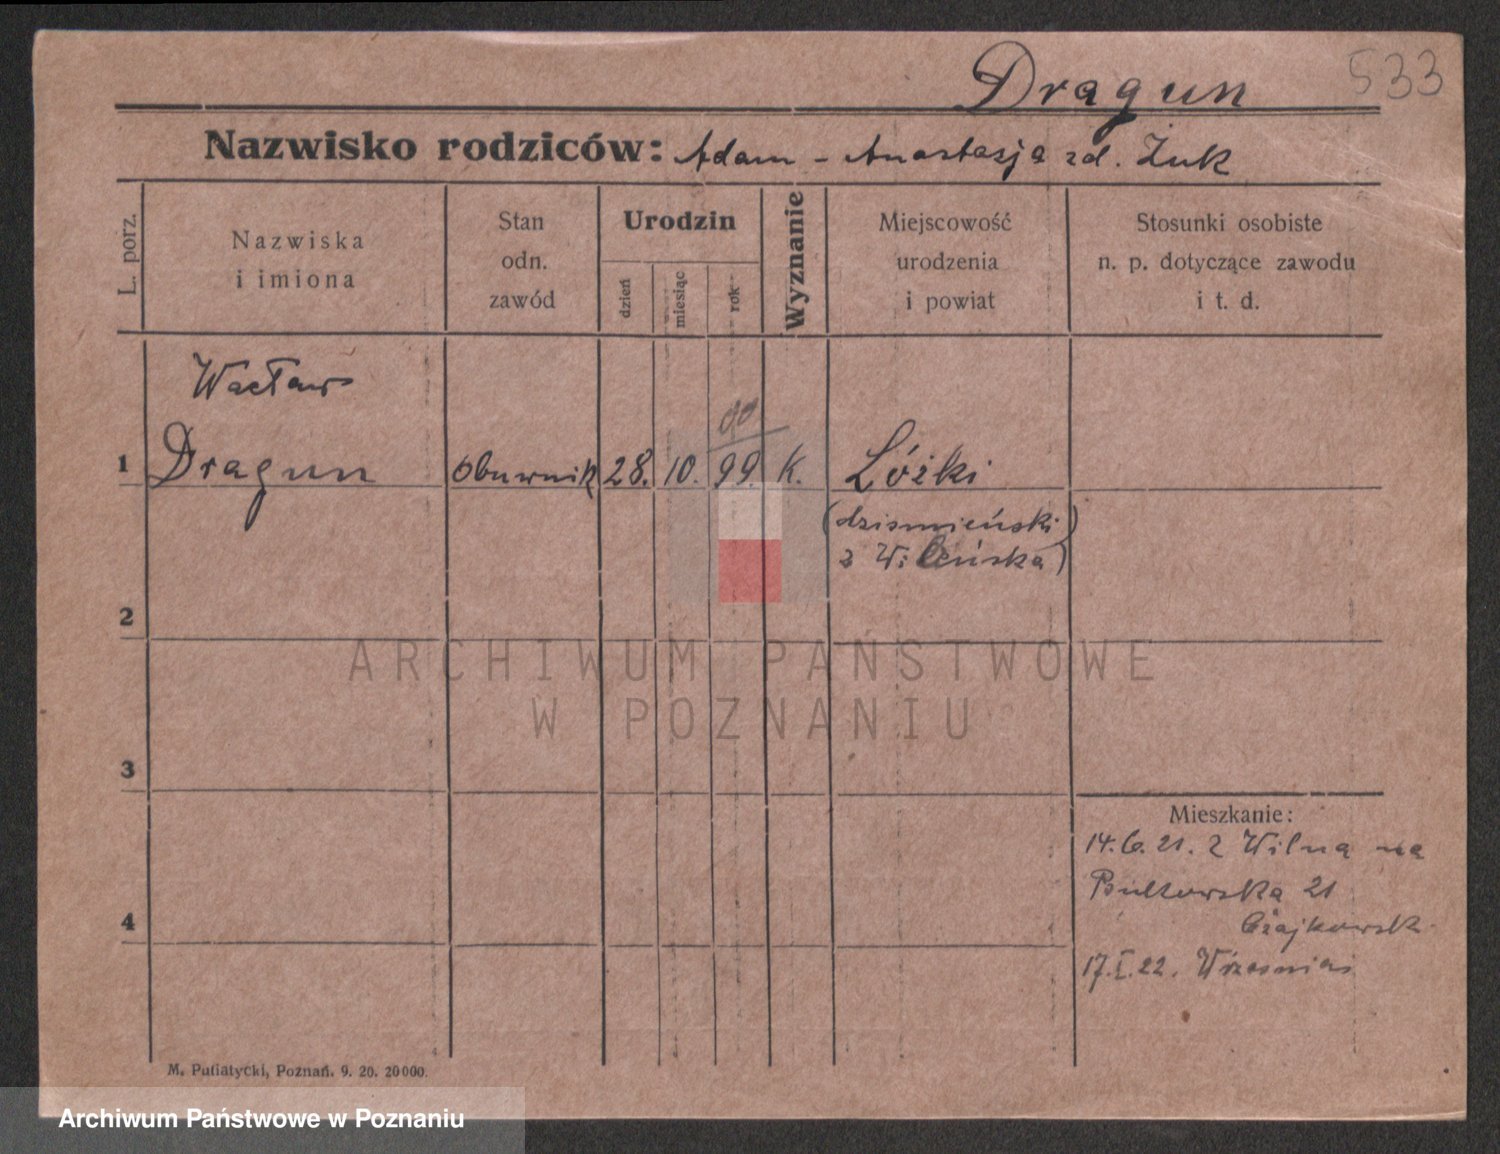 Dragun 533
Nazwisko rodziców: Adam - Anastazja zd. Żuk
L. porz.
Nazwiska
i imiona
Stan
odn.
zawód
Urodzin
dzień
miesiąc
rok
Wyznanie
Miejscowość
urodzenia
i powiat
Stosunki osobiste
n. p. dotyczące zawodu
i t. d.
Wacław
00
1 Dragun obuwnik 28. 10. 99. K. Łóżki
(dzismieński
z Wileńska)
2
ARCHIWUM PAŃSTWOWE
W POZNANIU
3
Mieszkanie:
14.6.21. z Wilna na
21
4
17.I.22. Wrzesnia
M. Putiatycki, Poznań. 9. 20. 20000.
Archiwum Państwowe w Poznaniu